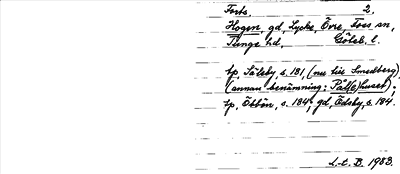 Forts. 2.
Hogen, gd, Lycke, Övre, Foss sn,
Tunge hd, Göteb. l.
tp, Säleby, s. 181, (nu till Smedberg)
(annan benämning: Pål(e)huset);
tp, Öbbön, s. 184; gd, Ödsby, s. 184.
L.t. B. 1983.